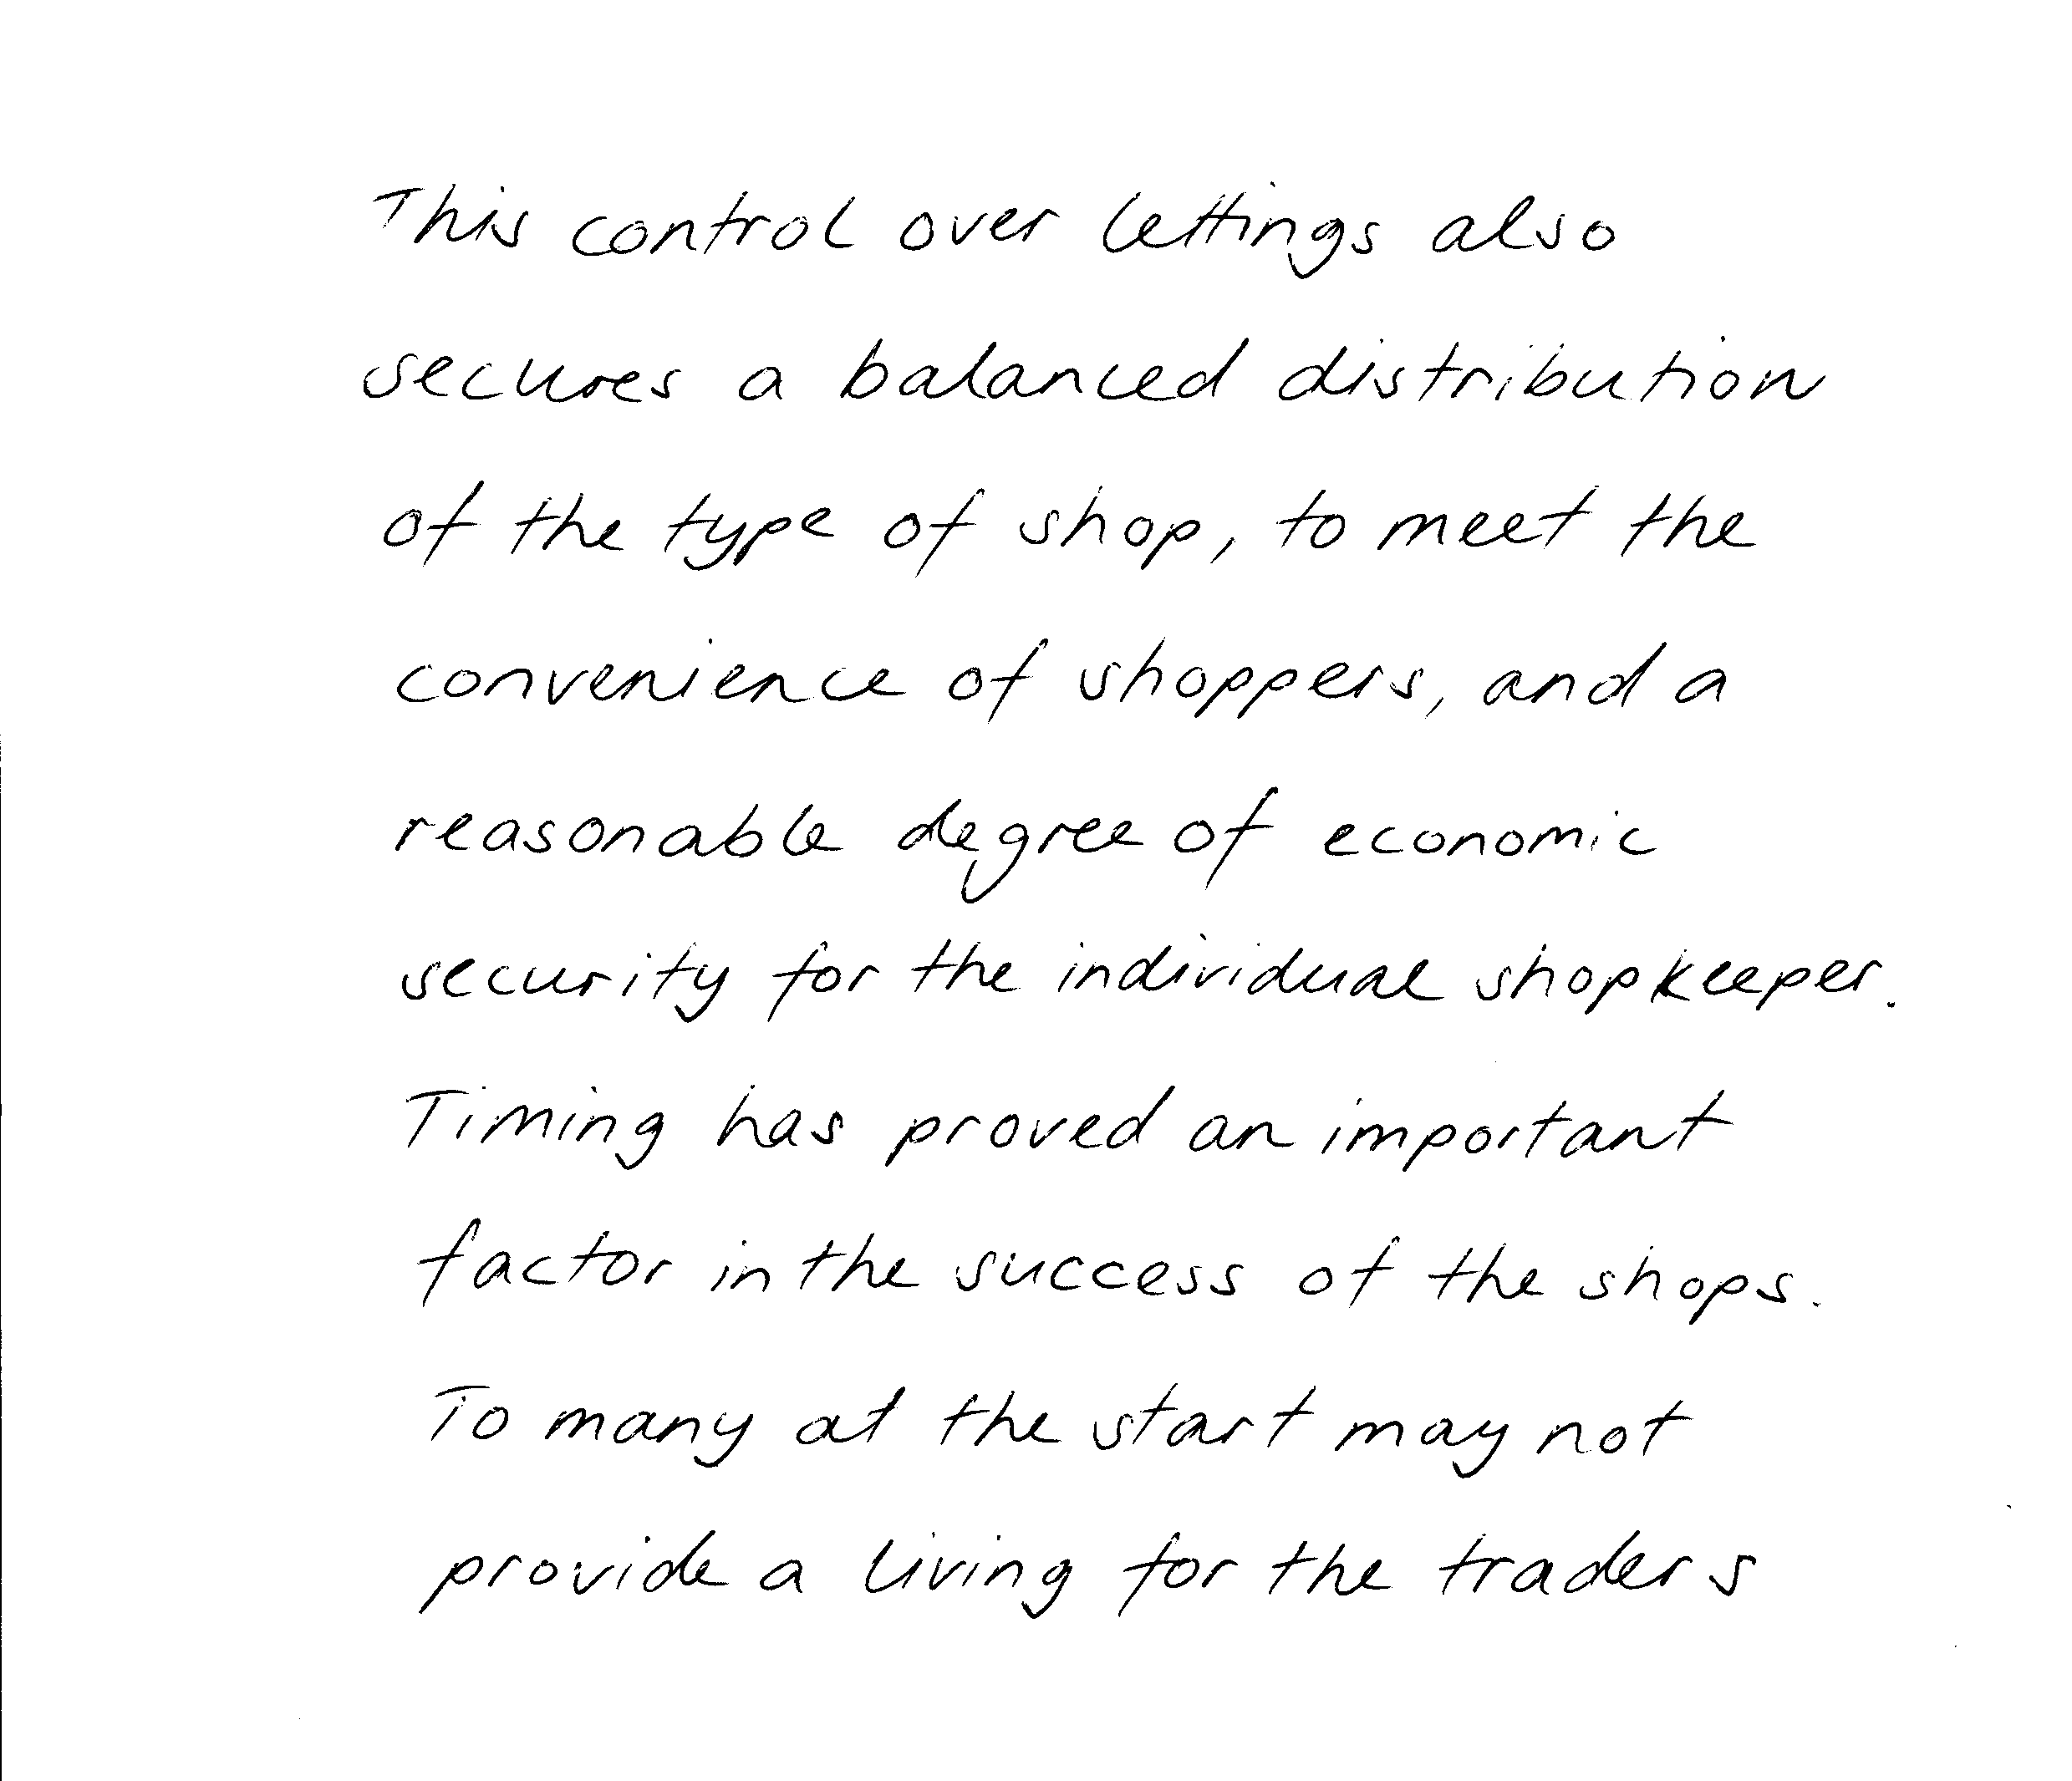 This control over lettings also
secures a balanced distribution
of the type of shop, to meet the
convenience of shoppers, and a
reasonable degree of economic
security for the individual shopkeeper.
Timing has proved an important
factor in the success of the shops.
To many at the start may not
provide a living for the traders